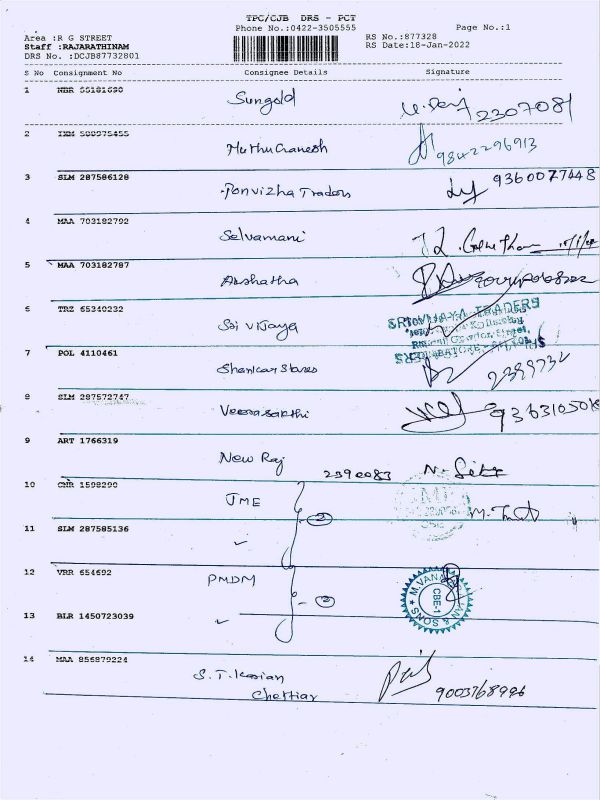 TPC/CJB DRS - PCT
Phone No.:0422-3505555
Page No.:1
Area :R G STREET
Staff :RAJARATHINAM
DRS No. :DCJB87732801
RS No.:877328
RS Date:18-Jan-2022
S No Consignment No Consignee Details Signature
1 NBR 55181690 Sungold 2307081
2 500975455 Muthu Ganesh 9842296913
3 SLM 287586128 Ponvizha Traders 9360077448
4 MAA 703182792 Selvamani
5 MAA 703182787 Akshatha
6 TRZ 65340232 Sri Vijaya
SRI VIJAYA TRADERS
7 POL 4110461 Shankar Stores 2399732
8 SLM 287572747 Veerasakthi
9 ART 1766319 New Raj 2390083
10 CNR 1598290 JME
2
11 SLM 287585136 ✓
12 VRR 654692 PMDM
2
CBE-1
& SONS
13 BLR 1450723039 ✓
14 MAA 856879224 S.T. Kasian
Chettiar